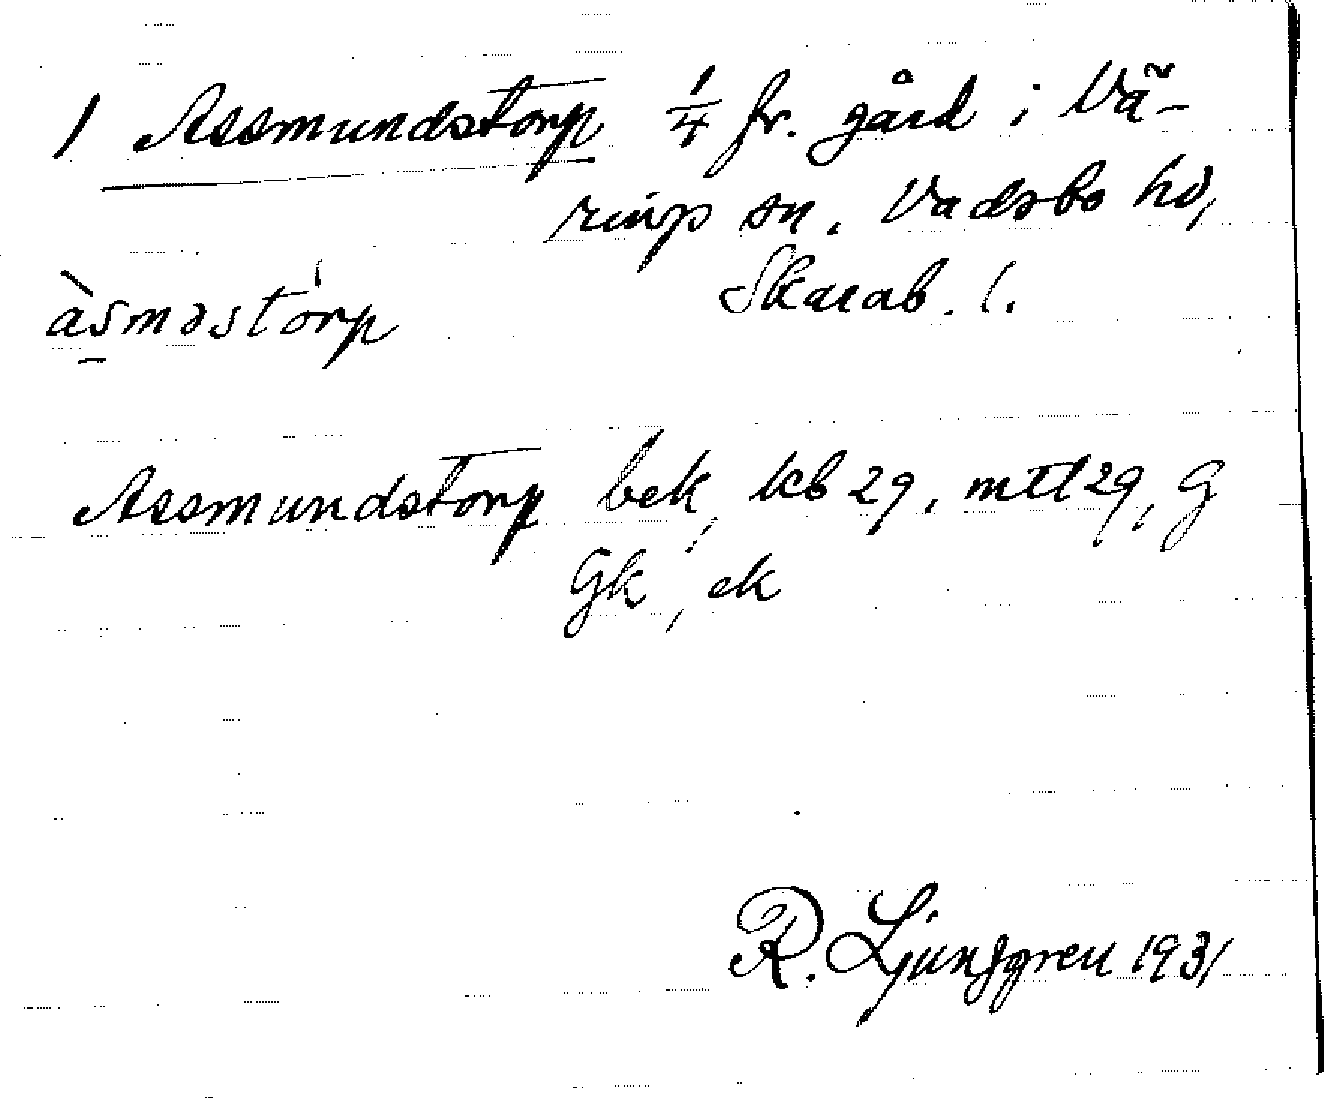 1 Assmundstorp 1/4 fr. gård i Vä-
rings sn. Vadsbo hd,
Skarab. l.
àsməstórp
Assmundstorp bek, kb 29, mtl 29, G
Gk, ek
R. Ljunggren 1931